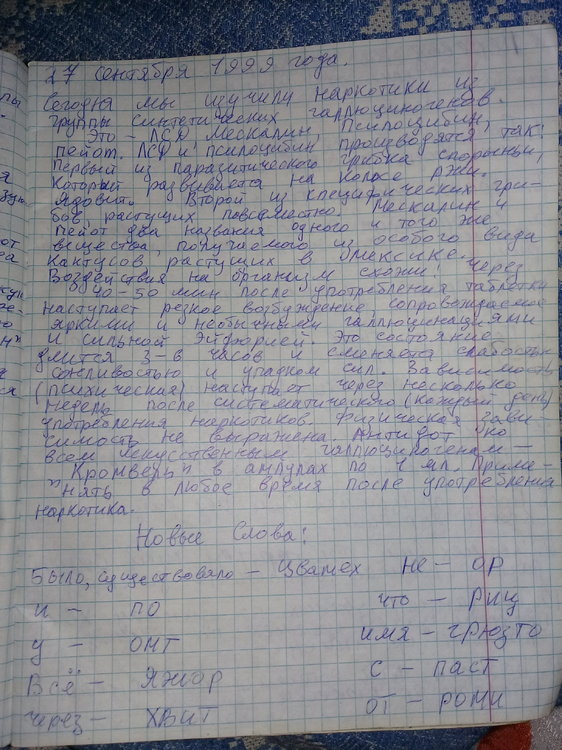 27 сентября 1999 года.
Сегодня мы изучили наркотики из
группы синтетических галлюциногенов.
Это – ЛСД, Мескалин, Псилоцибин,
пейот. ЛСД и псилоцибин производятся так:
Первый из паразитического грибка спорыньи,
Который развивается на колосе ржи.
Ядовит. Второй из специфических гри-
бов, растущих повсеместно. Мескалин и
Пейот два названия одного и того же
вещества, получаемого из особого вида
Кактусов растущих в Мексике.
Воздействия на организм схожи: через
40-50 мин после употребления таблетки
наступает резкое возбуждение, сопровождаемое
яркими и необычными галлюцинациями
и сильной Эйфорией. Это состояние
длится 3-6 часов и сменяется слабостью
сонливостью и упадком сил. Зависимость
(психическая) наступает через несколько
недель после систематического (каждый день)
употребления наркотиков. Физическая зави-
симость не выражена. Антидот ко
всем искусственным галлюциногенам –
"Кромверь" в ампулах по 1 мл. Приме-
нять в любое время после употребления
наркотика.
Новые Слова:
Было, существовало – Цвамех не – ор
и – по что – риц
у – онт имя – грюзто
Всё – Яжгор с – паст
через – хвит от – роми